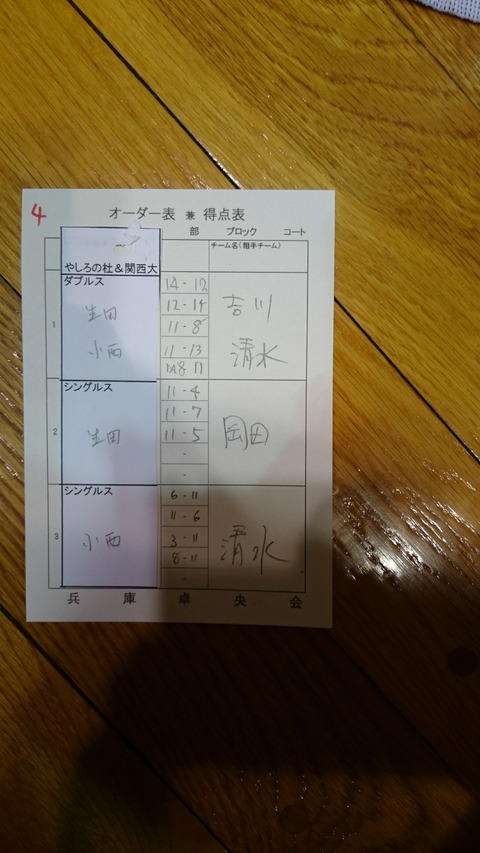 4
オーダー表 兼 得点表
部 ブロック コート
チーム名(相手チーム)
やしろの杜&関西大
ダブルス
1
生田
小西
14 - 12
12 - 14
11 - 8
11 - 13
8 11
吉川
清水
シングルス
2
生田
11 - 4
11 - 7
11 - 5
-
-
岡田
シングルス
3
小西
6 - 11
11 - 6
3 - 11
8 - 11
-
清水
兵 庫 卓 央 会